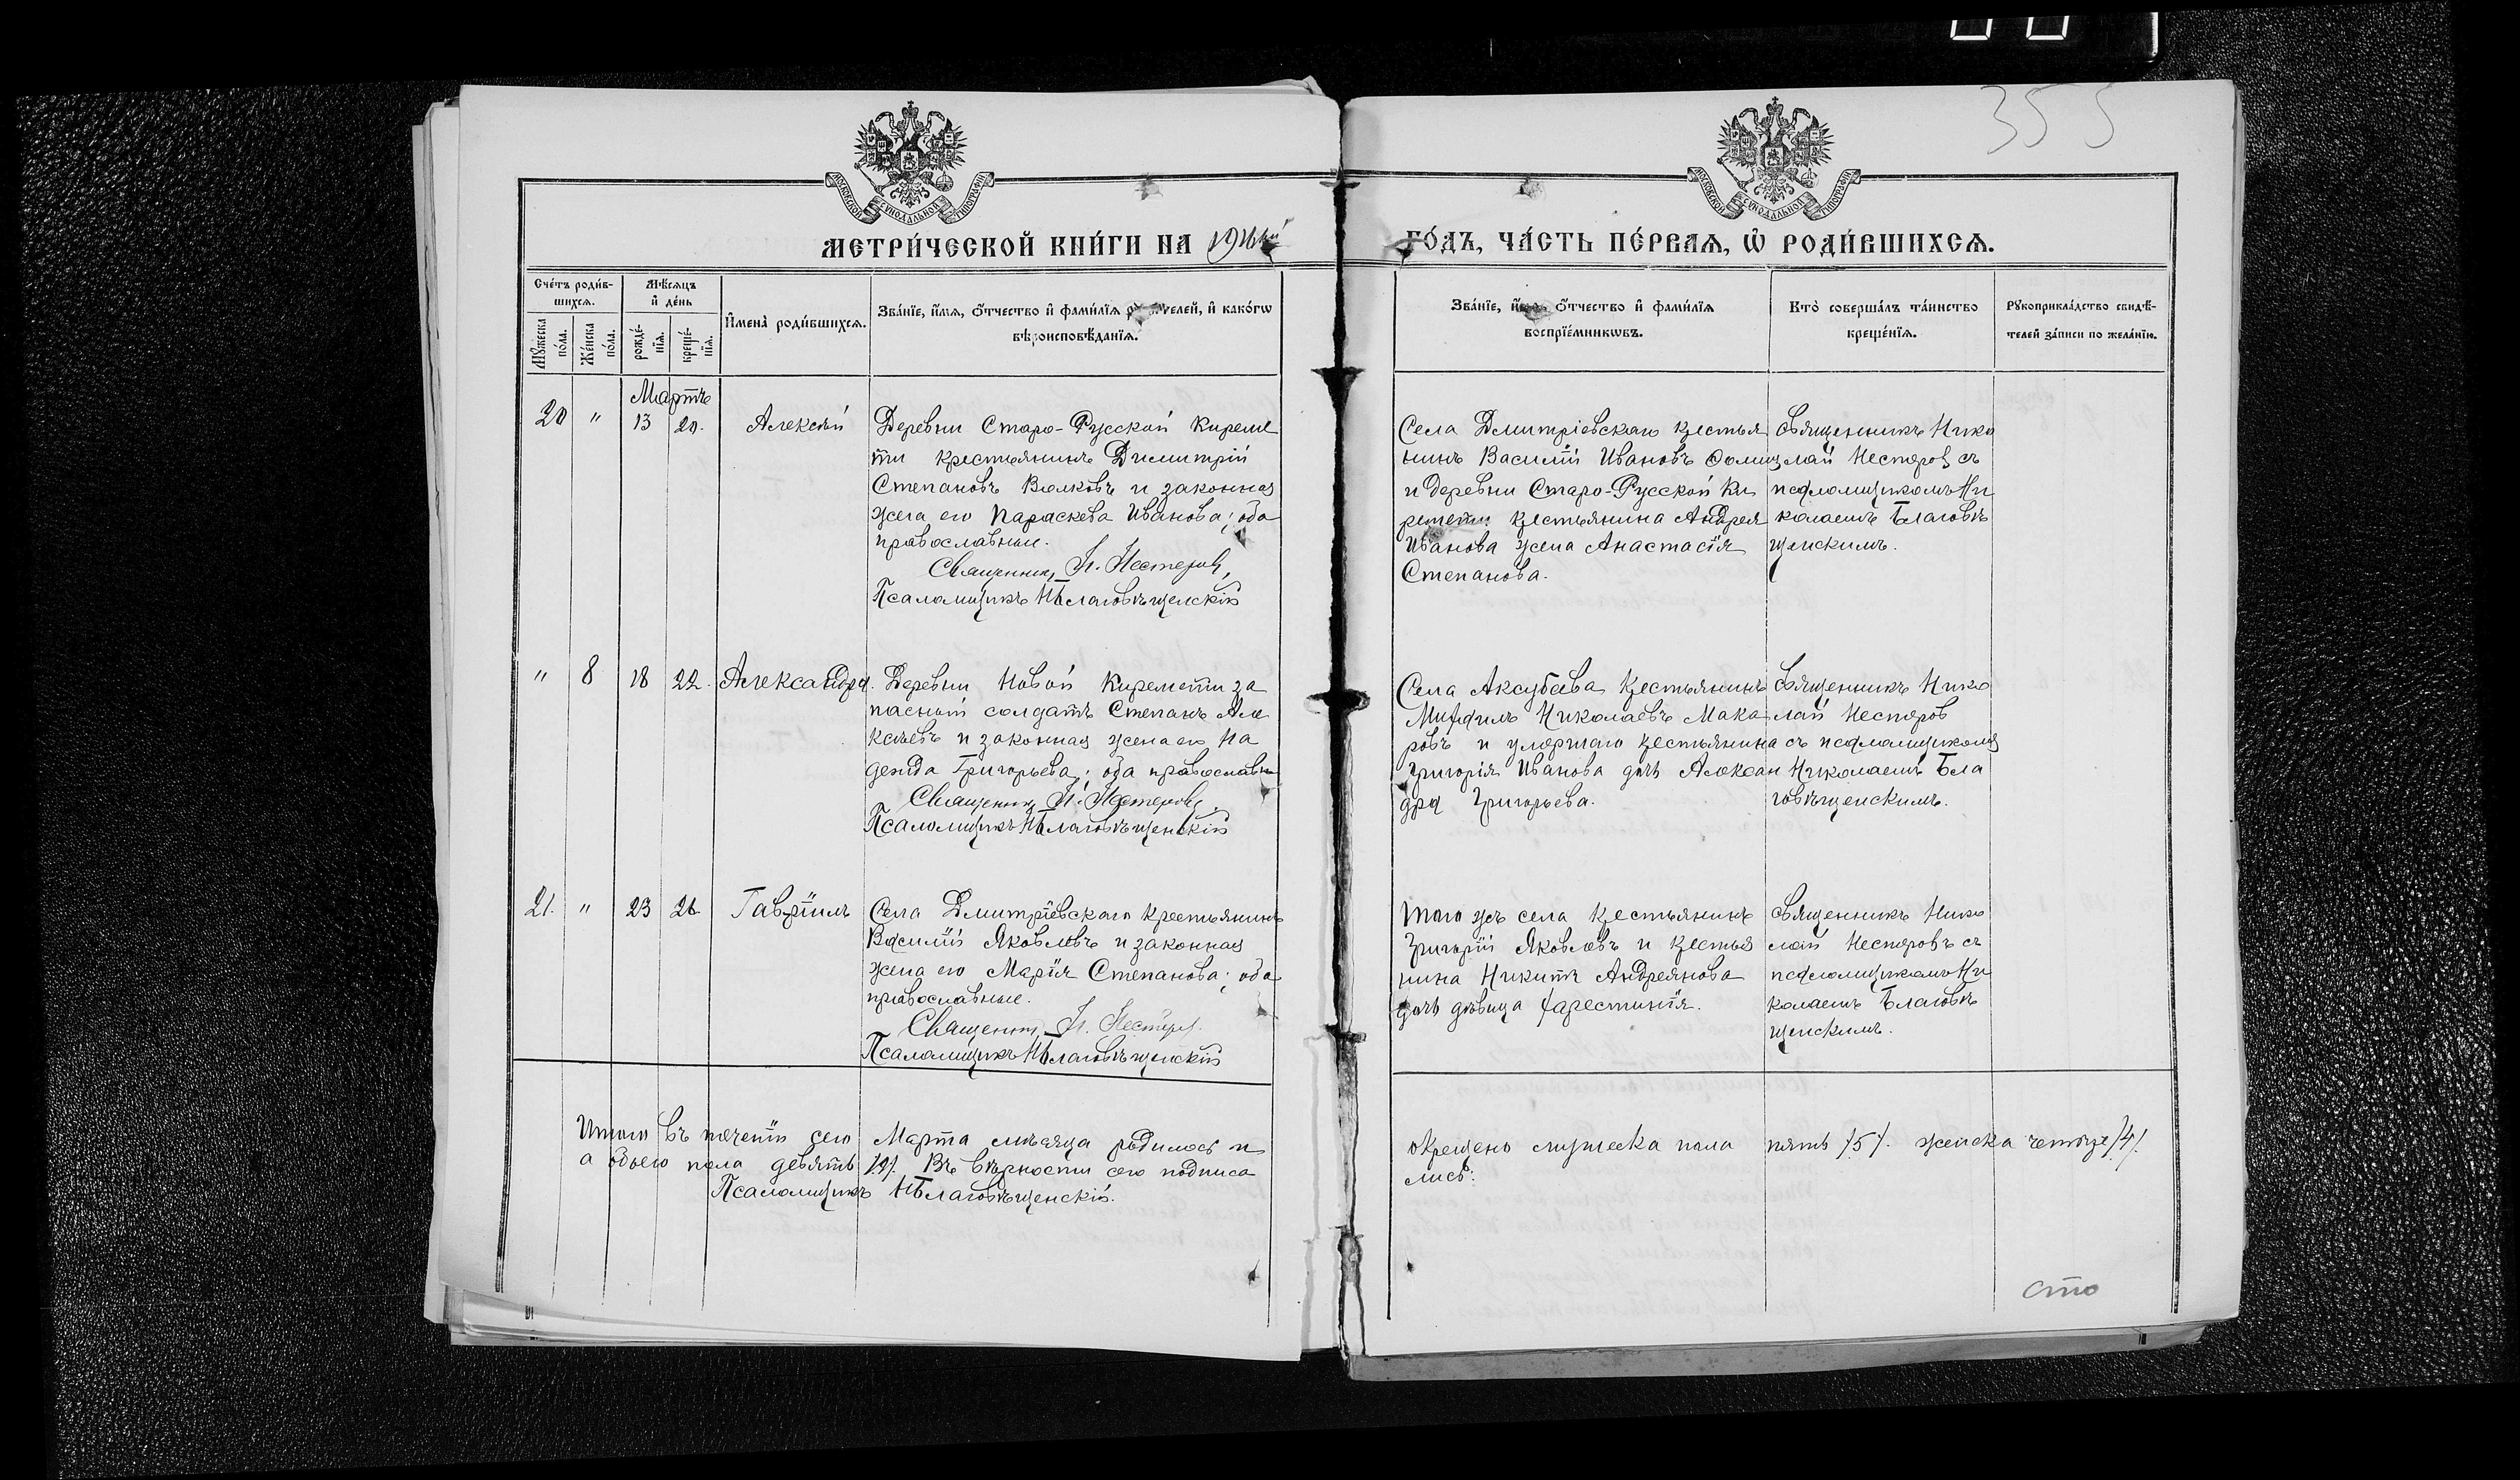 355
МОСКОВСКОЙ СУНОДАЛЬНОЙ ТИПОГРАФІИ
МОСКОВСКОЙ СУНОДАЛЬНОЙ ТИПОГРАФІИ
МЕТРИ́ЧЕСКОЙ КНИ́ГИ НА
ГО́ДЪ, ЧА́СТЬ ПЕ́РВАѦ, Ѡ҆ РОДИ́ВШИХСѦ.
Сче́тъ роди́в-
шихсѧ.
Мѣ́сѧцъ
и҆ де́нь
Мꙋ́жеска
по́ла.
Же́нска
по́ла.
рожде́-
нїѧ.
креще́-
нїѧ.
И҆мена̀ роди́вшихсѧ.
Зва́нїе, и҆́мѧ, ѻ҆́тчество и҆ фами́лїѧ родителей, и҆ како́гѡ
вѣроисповѣ́данїѧ.
Зва́нїе, и҆́мѧ, ѻ҆́тчество и҆ фами́лїѧ
воспрїе́мникѡвъ.
Кто̀ соверша́лъ та́инство
креще́нїѧ.
Рꙋкоприкла́дство свидѣ́-
телей за́писи по жела́нїю.
Мартъ
20 " 13 20. Алексѣй
Деревни Старо-Русской Киреме
ти крестьянинъ Димитрій
Степановъ Волковъ и законная
жена его Параскева Иванова; оба
православные.
Священникъ Н. Нестеровъ,
Псаломщикъ Н Благовѣщенскій
Села Дмитріевскаго крестья
нинъ Василій Ивановъ
и деревни Старо-Русской Ки
ремети крестьянина Андрея
Иванова жена Анастасія
Степанова.
Священникъ Нико
лай Нестеровъ съ
псаломщикомъ Ни
колаемъ Благовѣ
щенскимъ.
" 8 18 22. Александра.
Деревни Новой Киремети за
пасный солдатъ Степанъ Але
ксѣевъ и законная жена его На
дежда Григорьева; оба православны
Священникъ Н. Нестеровъ.
Псаломщикъ Н Благовѣщенскій
Села Аксубаева крестьянинъ
Николаевъ Мака
ровъ и умершаго крестьянина
Григорія Иванова дочь Алексан
дра Григорьева.
Священникъ Нико
лай Нестеров
съ псаломщикомъ
Николаемъ Бла
говѣщенскимъ.
21. " 23 26 Гавріилъ
Села Дмитріевскаго крестьянинъ
Василій Яковлевъ и законная
жена его Марія Степанова; оба
православные.
Священникъ Н. Нестеров.
Псаломщикъ Н Благовѣщенскій
Того жъ села крестьянинъ
Григорій Яковлевъ и крестья
нина Никиты Андреянова
дочь дѣвица Харестинія.
Священникъ Нико
лай Нестеровъ съ
псаломщикомъ Ни
колаемъ Благовѣ
щенскимъ.
Итого въ теченіи сего Марта мѣсяца родилось и
окрещено мужеска пола пять /5/. женска четыре /4/.
а обоего пола девять /9/. Въ вѣрности сего подписа
лись:
Псаломщикъ Н Благовѣщенскій.
сто